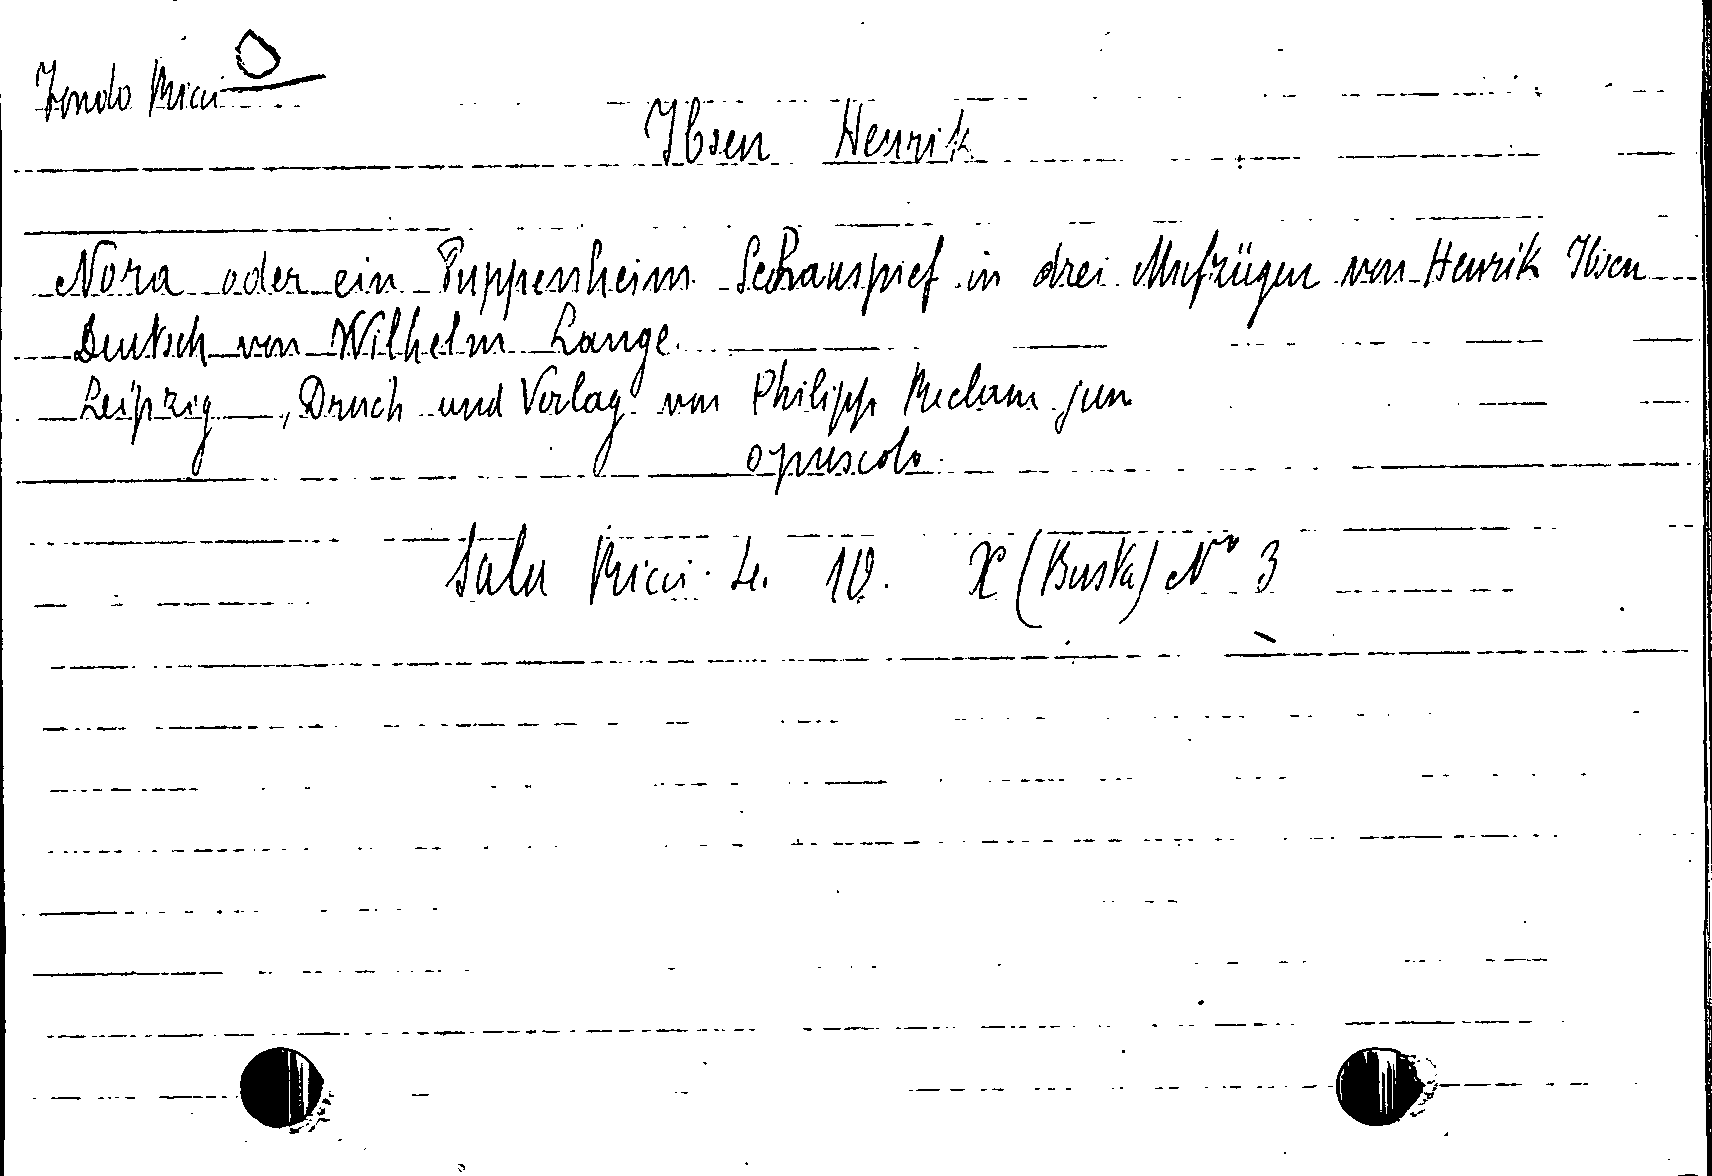 Fondo Ricci
Ibsen Henrik
Nora oder ein Puppensheim Schauspief in drei Aufzügen von Henrik Ibsen
Deutsch von Wilhelm Lange.
Leipzig, Druch und Verlag von Philipp Reclam jun
opuscolo
Sala Ricci. Le. 10. X (Busta) N° 3